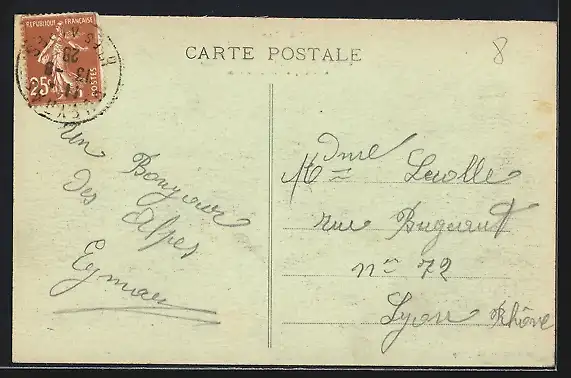 REPUBLIQUE FRANÇAISE
25c
POSTES
CARTE POSTALE
8
Un Bonjour
des Alpes
Eymar
Mdme Lecolle
rue Bugeaud
no 72
Lyon Rhône